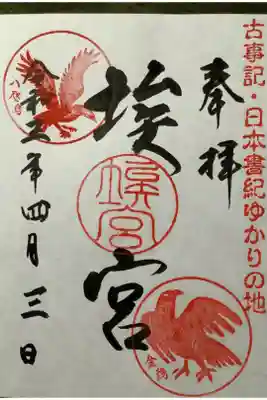 古事記・日本書紀ゆかりの地
奉拝
埃宮
埃宮
八咫烏
金鵄
令和五年四月三日